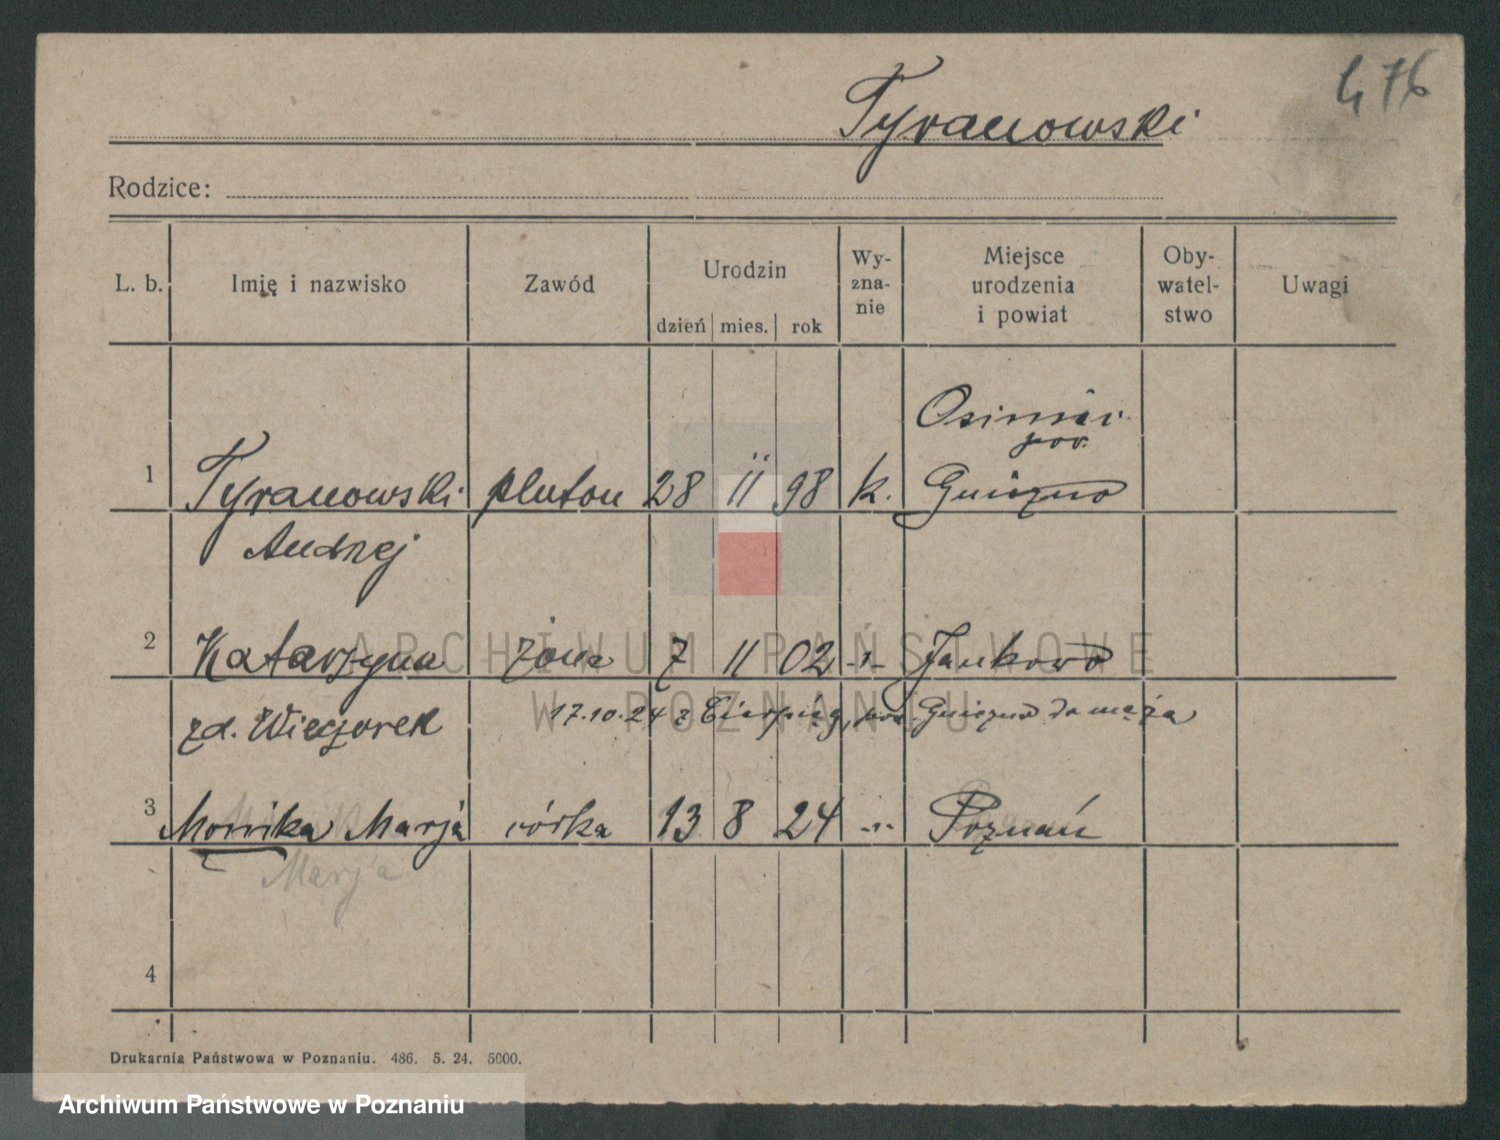 476
Tyranowski
Rodzice:
L. b. Imię i nazwisko Zawód Urodzin dzień mies. rok Wy-zna-nie Miejsce urodzenia i powiat Oby-watel-stwo Uwagi
pow.
1 Tyranowski pluton 28 11 98 k. Gniezno
Andrzej
2 Katarzyna żona 7 11 02 -"- Jankowo
zd. Wieczorek 17.10.24 z pow. Gniezno do męża
3 Monika Marja córka 13 8 24 -"- Poznań
Marja
4
Drukarnia Państwowa w Poznaniu. 486. 5. 24. 5000.
ARCHIWUM PAŃSTWOWE
W POZNANIU
Archiwum Państwowe w Poznaniu